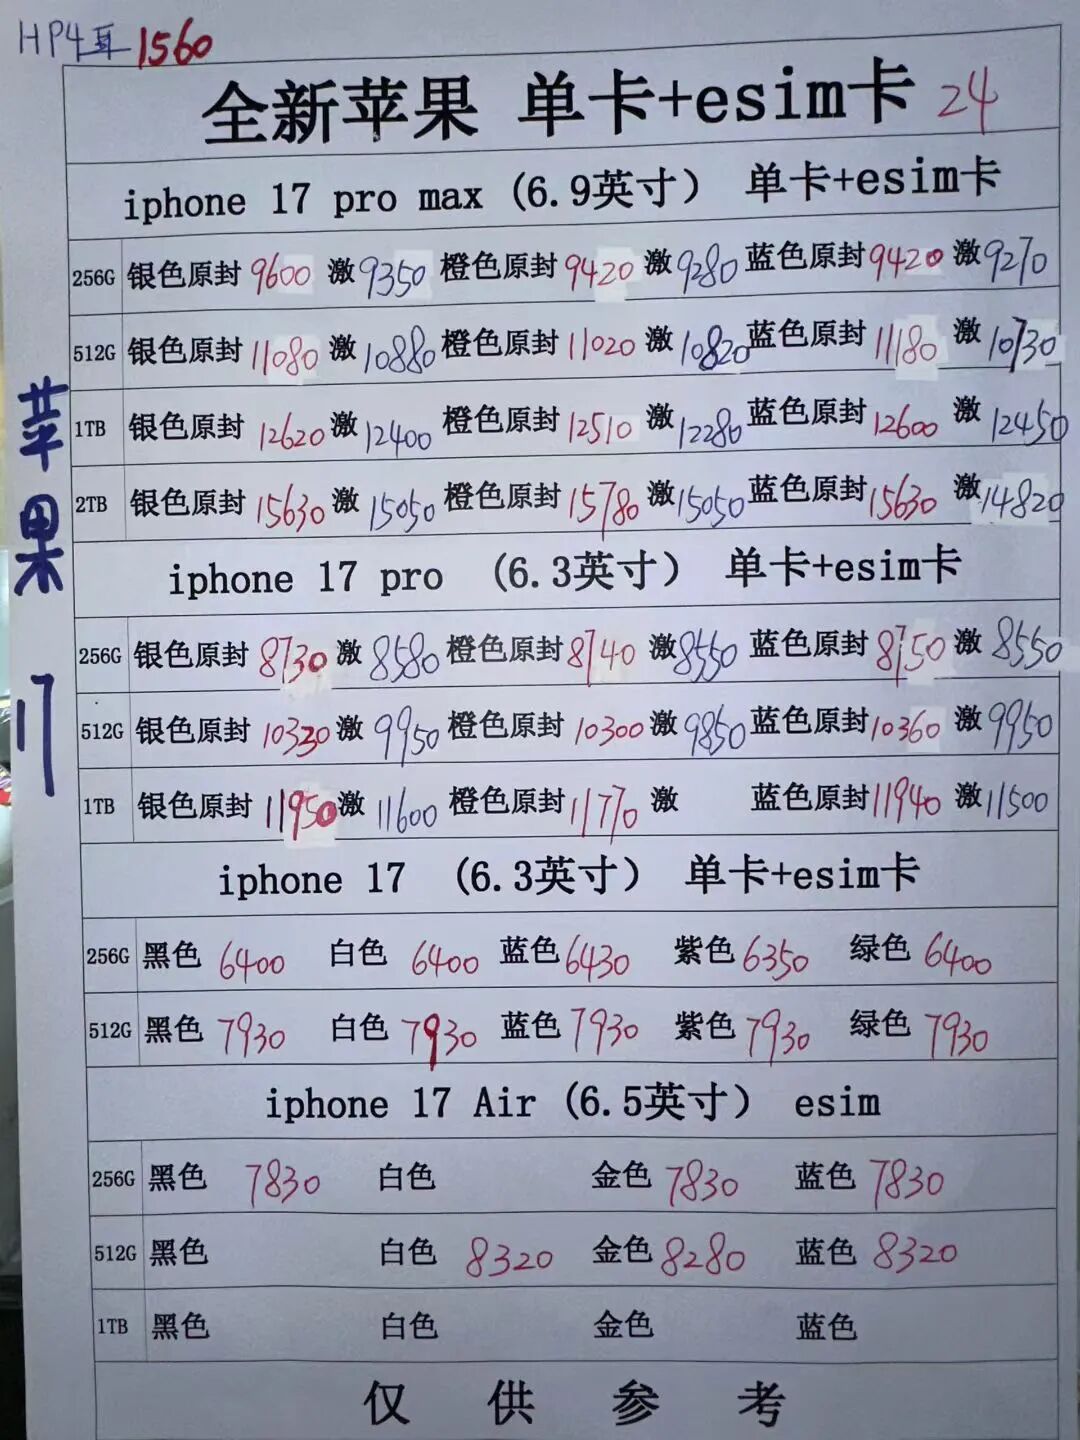 HP4耳 1560
全新苹果 单卡+esim卡 24
iphone 17 pro max (6.9英寸） 单卡+esim卡
256G 银色原封 9600 激 9350 橙色原封 9420 激 9280 蓝色原封 9420 激 9270
512G 银色原封 11080 激 10880 橙色原封 11020 激 10820 蓝色原封 11180 激 10730
1TB 银色原封 12620 激 12400 橙色原封 12510 激 12280 蓝色原封 12600 激 12450
2TB 银色原封 15630 激 15050 橙色原封 15780 激 15050 蓝色原封 15630 激 14820
iphone 17 pro （6.3英寸） 单卡+esim卡
256G 银色原封 8730 激 8580 橙色原封 8740 激 8550 蓝色原封 8750 激 8550
512G 银色原封 10330 激 9950 橙色原封 10300 激 9850 蓝色原封 10360 激 9950
1TB 银色原封 11950 激 11600 橙色原封 11770 激 蓝色原封 11940 激 11500
iphone 17 （6.3英寸） 单卡+esim卡
256G 黑色 6400 白色 6400 蓝色 6430 紫色 6350 绿色 6400
512G 黑色 7930 白色 7930 蓝色 7930 紫色 7930 绿色 7930
iphone 17 Air (6.5英寸） esim
256G 黑色 7830 白色 金色 7830 蓝色 7830
512G 黑色 白色 8320 金色 8280 蓝色 8320
1TB 黑色 白色 金色 蓝色
仅供参考
苹果